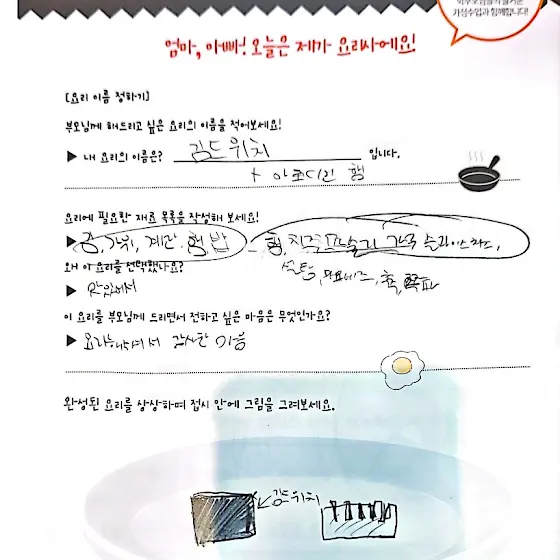 가정수업과 함께합니다!
엄마, 아빠! 오늘은 제가 요리사에요!
[요리 이름 정하기]
부모님께 해드리고 싶은 요리의 이름을 적어보세요!
▶ 내 요리의 이름은? 김드위치 입니다.
+
요리에 필요한 재료 목록을 작성해 보세요!
▶ 김, 계란, 햄 밥
왜 이 요리를 선택했나요?
설탕, 마요네즈,
▶ 맛있어서
이 요리를 부모님께 드리면서 전하고 싶은 마음은 무엇인가요?
▶ 감사한 마음
완성된 요리를 상상하며 접시 안에 그림을 그려보세요.
김드위치